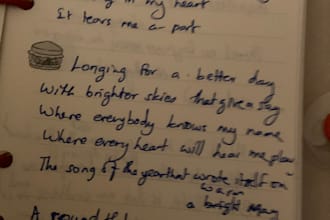 in my heart
It tears me a-part
Longing for a better day
With brighter skies that give a say
Where everybody knows my name
Where every heart will hear me play
The song of the year that wrote itself on
a bright May
A round th